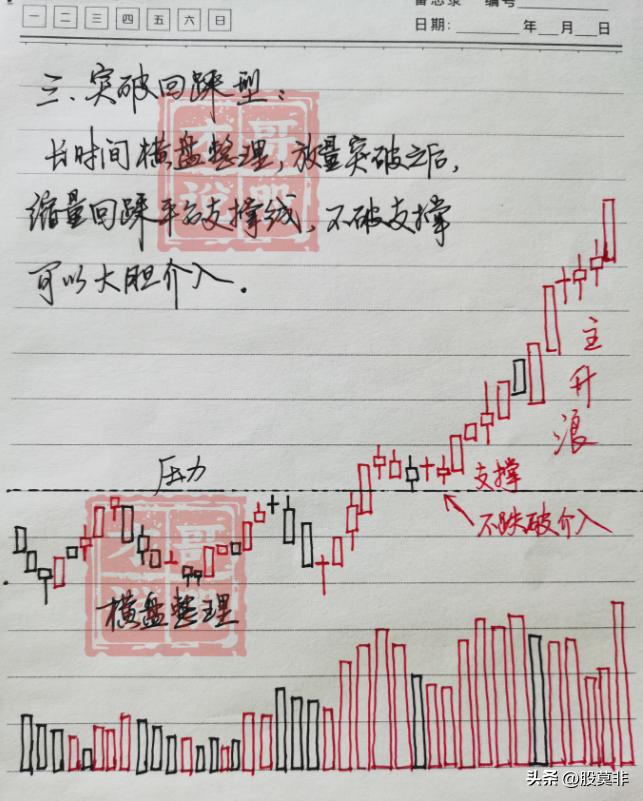 备忘录 编号
一 二 三 四 五 六 日
日期： 年 月 日
三、突破回踩型：
长时间横盘整理，放量突破之后，
缩量回踩平台支撑线，不破支撑
可以大胆介入．
主升浪
压力
支撑
不跌破介入
横盘整理
头条 @股莫非